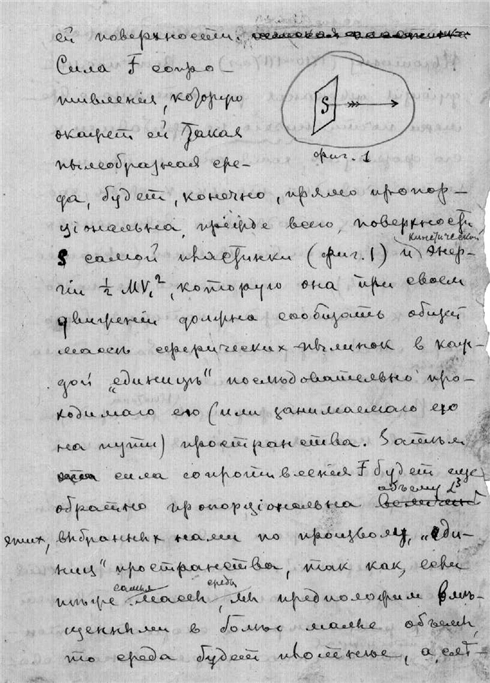 ей поверхности.
Сила F сопро-
тивленія, которую
окажет ей такая
пылеобразная сре-
S
фиг. 1
да, будет, конечно, прямо пропор-
ціональна, прежде всего, поверхности
S самой пластинки (фиг. 1) и кинетической энер-
гіи ½ MV₁², которую она при своем
движеніи должна сообщать общей
массѣ сферических пылинок в каж-
дой „единицѣ" послѣдовательно про-
ходимаго ею (или занимаемаго ею
на пути) пространства. Затѣм
сила сопротивленія F будет еще
обратно пропорціональна объему L³
этих, выбранных нами по произволу, „еди-
ниц" пространства, так как, если
тѣ же самыя массы среды мы предположим вмѣ-
щенными в болѣе малые объемы,
то среда будет плотнѣе, а слѣ-